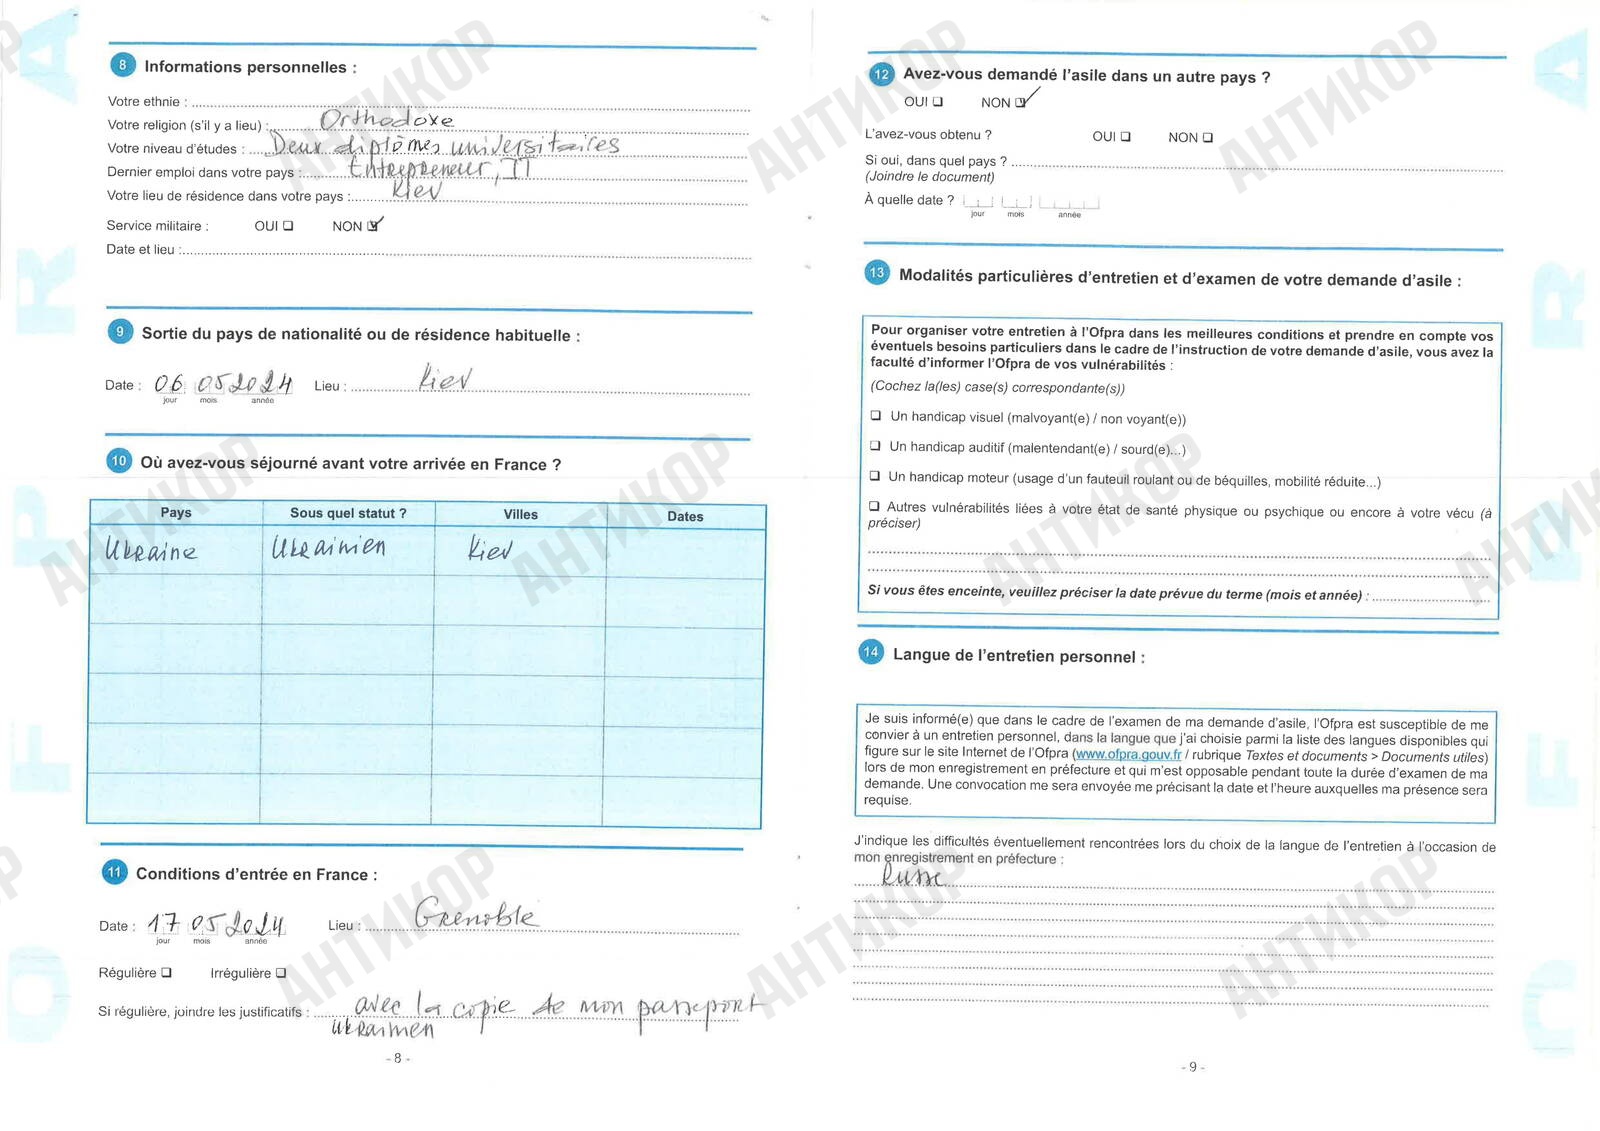 8 Informations personnelles :
Votre ethnie :
Votre religion (s'il y a lieu) : Orthodoxe
Votre niveau d'études : Deux diplômes universitaires
Dernier emploi dans votre pays : Entrepreneur, IT
Votre lieu de résidence dans votre pays : Kiev
Service militaire : OUI ☐ NON ☑
Date et lieu :
9 Sortie du pays de nationalité ou de résidence habituelle :
Date : 06 05 2024 Lieu : Kiev
jour mois année
10 Où avez-vous séjourné avant votre arrivée en France ?
Pays Sous quel statut ? Villes Dates
Ukraine Ukrainien Kiev
11 Conditions d'entrée en France :
Date : 17 05 2024 Lieu : Grenoble
jour mois année
Régulière ☐ Irrégulière ☐
Si régulière, joindre les justificatifs : avec la copie de mon passeport
Ukrainien
- 8 -
12 Avez-vous demandé l'asile dans un autre pays ?
OUI ☐ NON ☑
L'avez-vous obtenu ? OUI ☐ NON ☐
Si oui, dans quel pays ?
(Joindre le document)
À quelle date ?
jour mois année
13 Modalités particulières d'entretien et d'examen de votre demande d'asile :
Pour organiser votre entretien à l'Ofpra dans les meilleures conditions et prendre en compte vos
éventuels besoins particuliers dans le cadre de l'instruction de votre demande d'asile, vous avez la
faculté d'informer l'Ofpra de vos vulnérabilités :
(Cochez la(les) case(s) correspondante(s))
☐ Un handicap visuel (malvoyant(e) / non voyant(e))
☐ Un handicap auditif (malentendant(e) / sourd(e)...)
☐ Un handicap moteur (usage d'un fauteuil roulant ou de béquilles, mobilité réduite...)
☐ Autres vulnérabilités liées à votre état de santé physique ou psychique ou encore à votre vécu (à
préciser)
Si vous êtes enceinte, veuillez préciser la date prévue du terme (mois et année) :
14 Langue de l'entretien personnel :
Je suis informé(e) que dans le cadre de l'examen de ma demande d'asile, l'Ofpra est susceptible de me
convier à un entretien personnel, dans la langue que j'ai choisie parmi la liste des langues disponibles qui
figure sur le site Internet de l'Ofpra (www.ofpra.gouv.fr / rubrique Textes et documents > Documents utiles)
lors de mon enregistrement en préfecture et qui m'est opposable pendant toute la durée d'examen de ma
demande. Une convocation me sera envoyée me précisant la date et l'heure auxquelles ma présence sera
requise.
J'indique les difficultés éventuellement rencontrées lors du choix de la langue de l'entretien à l'occasion de
mon enregistrement en préfecture :
Russe
- 9 -
OFPRA
OFPRA
АНТИКОР
АНТИКОР
АНТИКОР
АНТИКОР
АНТИКОР
АНТИКОР
АНТИКОР
АНТИКОР
АНТИКОР
АНТИКОР